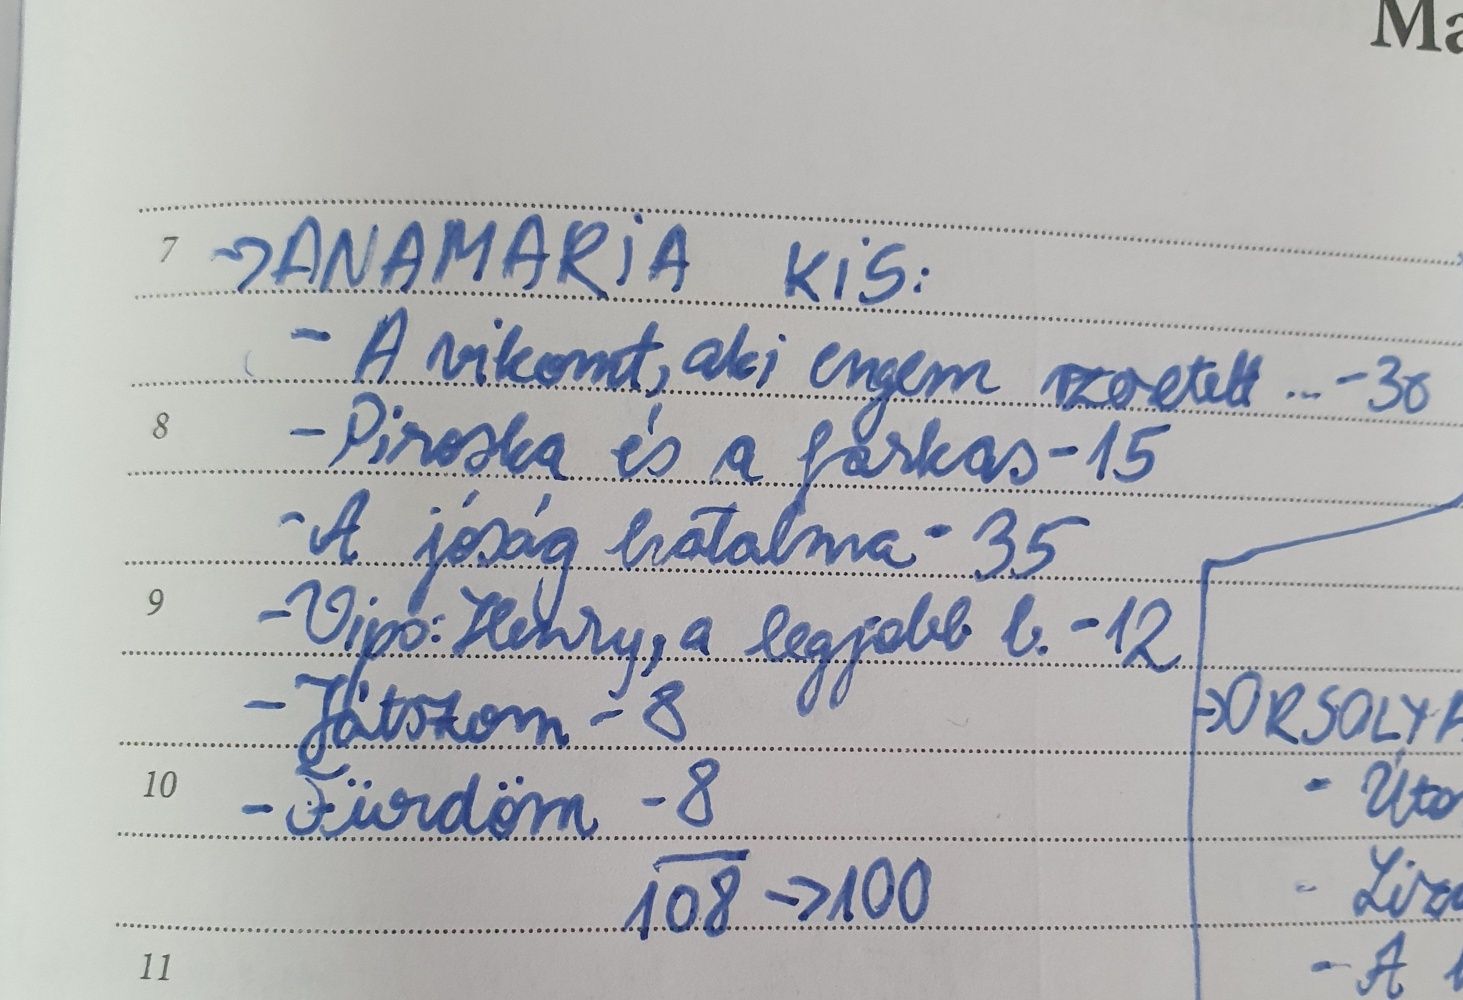 Ma
7 → ANAMARIA KIS:
- A vikomt, aki engem szeretett ... - 30
8 - Piroska és a farkas - 15
- A jóság hatalma - 35
9 - Vipo: Henry, a legjobb b. - 12
- Játszom - 8
→ ORSOLYA
10 - Fürdöm - 8
- Úto
108 → 100
- Liza
11
- A